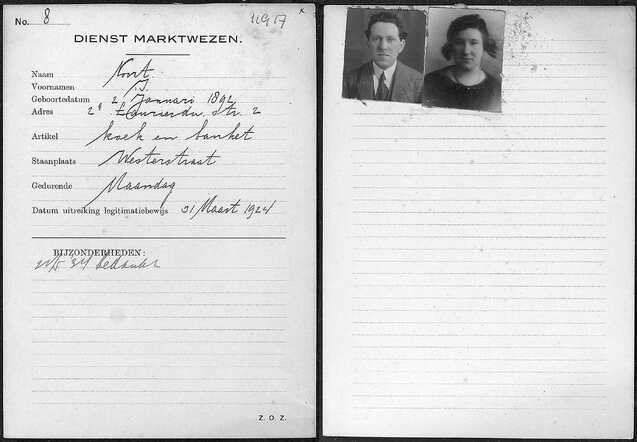 No. 8 11917
DIENST MARKTWEZEN.
Naam Noort
Voornamen J.
Geboortedatum 2 Januari 1892
Adres 2e Laurierdw. str. 2
Artikel koek en banket
Staanplaats Westerstraat
Gedurende Maandag
Datum uitreiking legitimatiebewijs 31 Maart 1924
BIJZONDERHEDEN:
34
Z. O. Z.